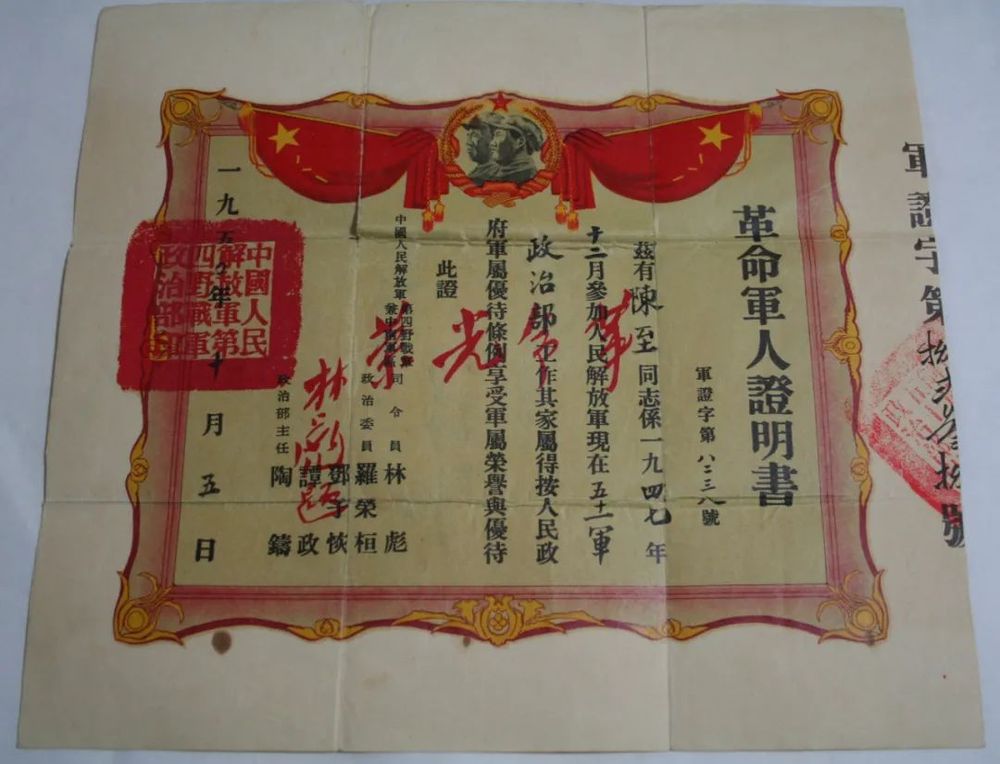 軍證字第捌弍叁捌號
革命軍人證明書
軍證字第八二三八號
茲有陳至同志係一九四七年
十二月參加人民解放軍現在五十一軍
政治部工作其家屬得按人民政
府軍屬優待條例享受軍屬榮譽與優待
此證
革命光榮
林彪題
中國人民解放軍第四野戰軍兼中南軍區司令員 林彪
政治委員 羅榮桓
鄧子恢
譚政
政治部主任 陶鑄
一九五年十月五日
中國人民
解放軍第
四野戰軍
政治部印